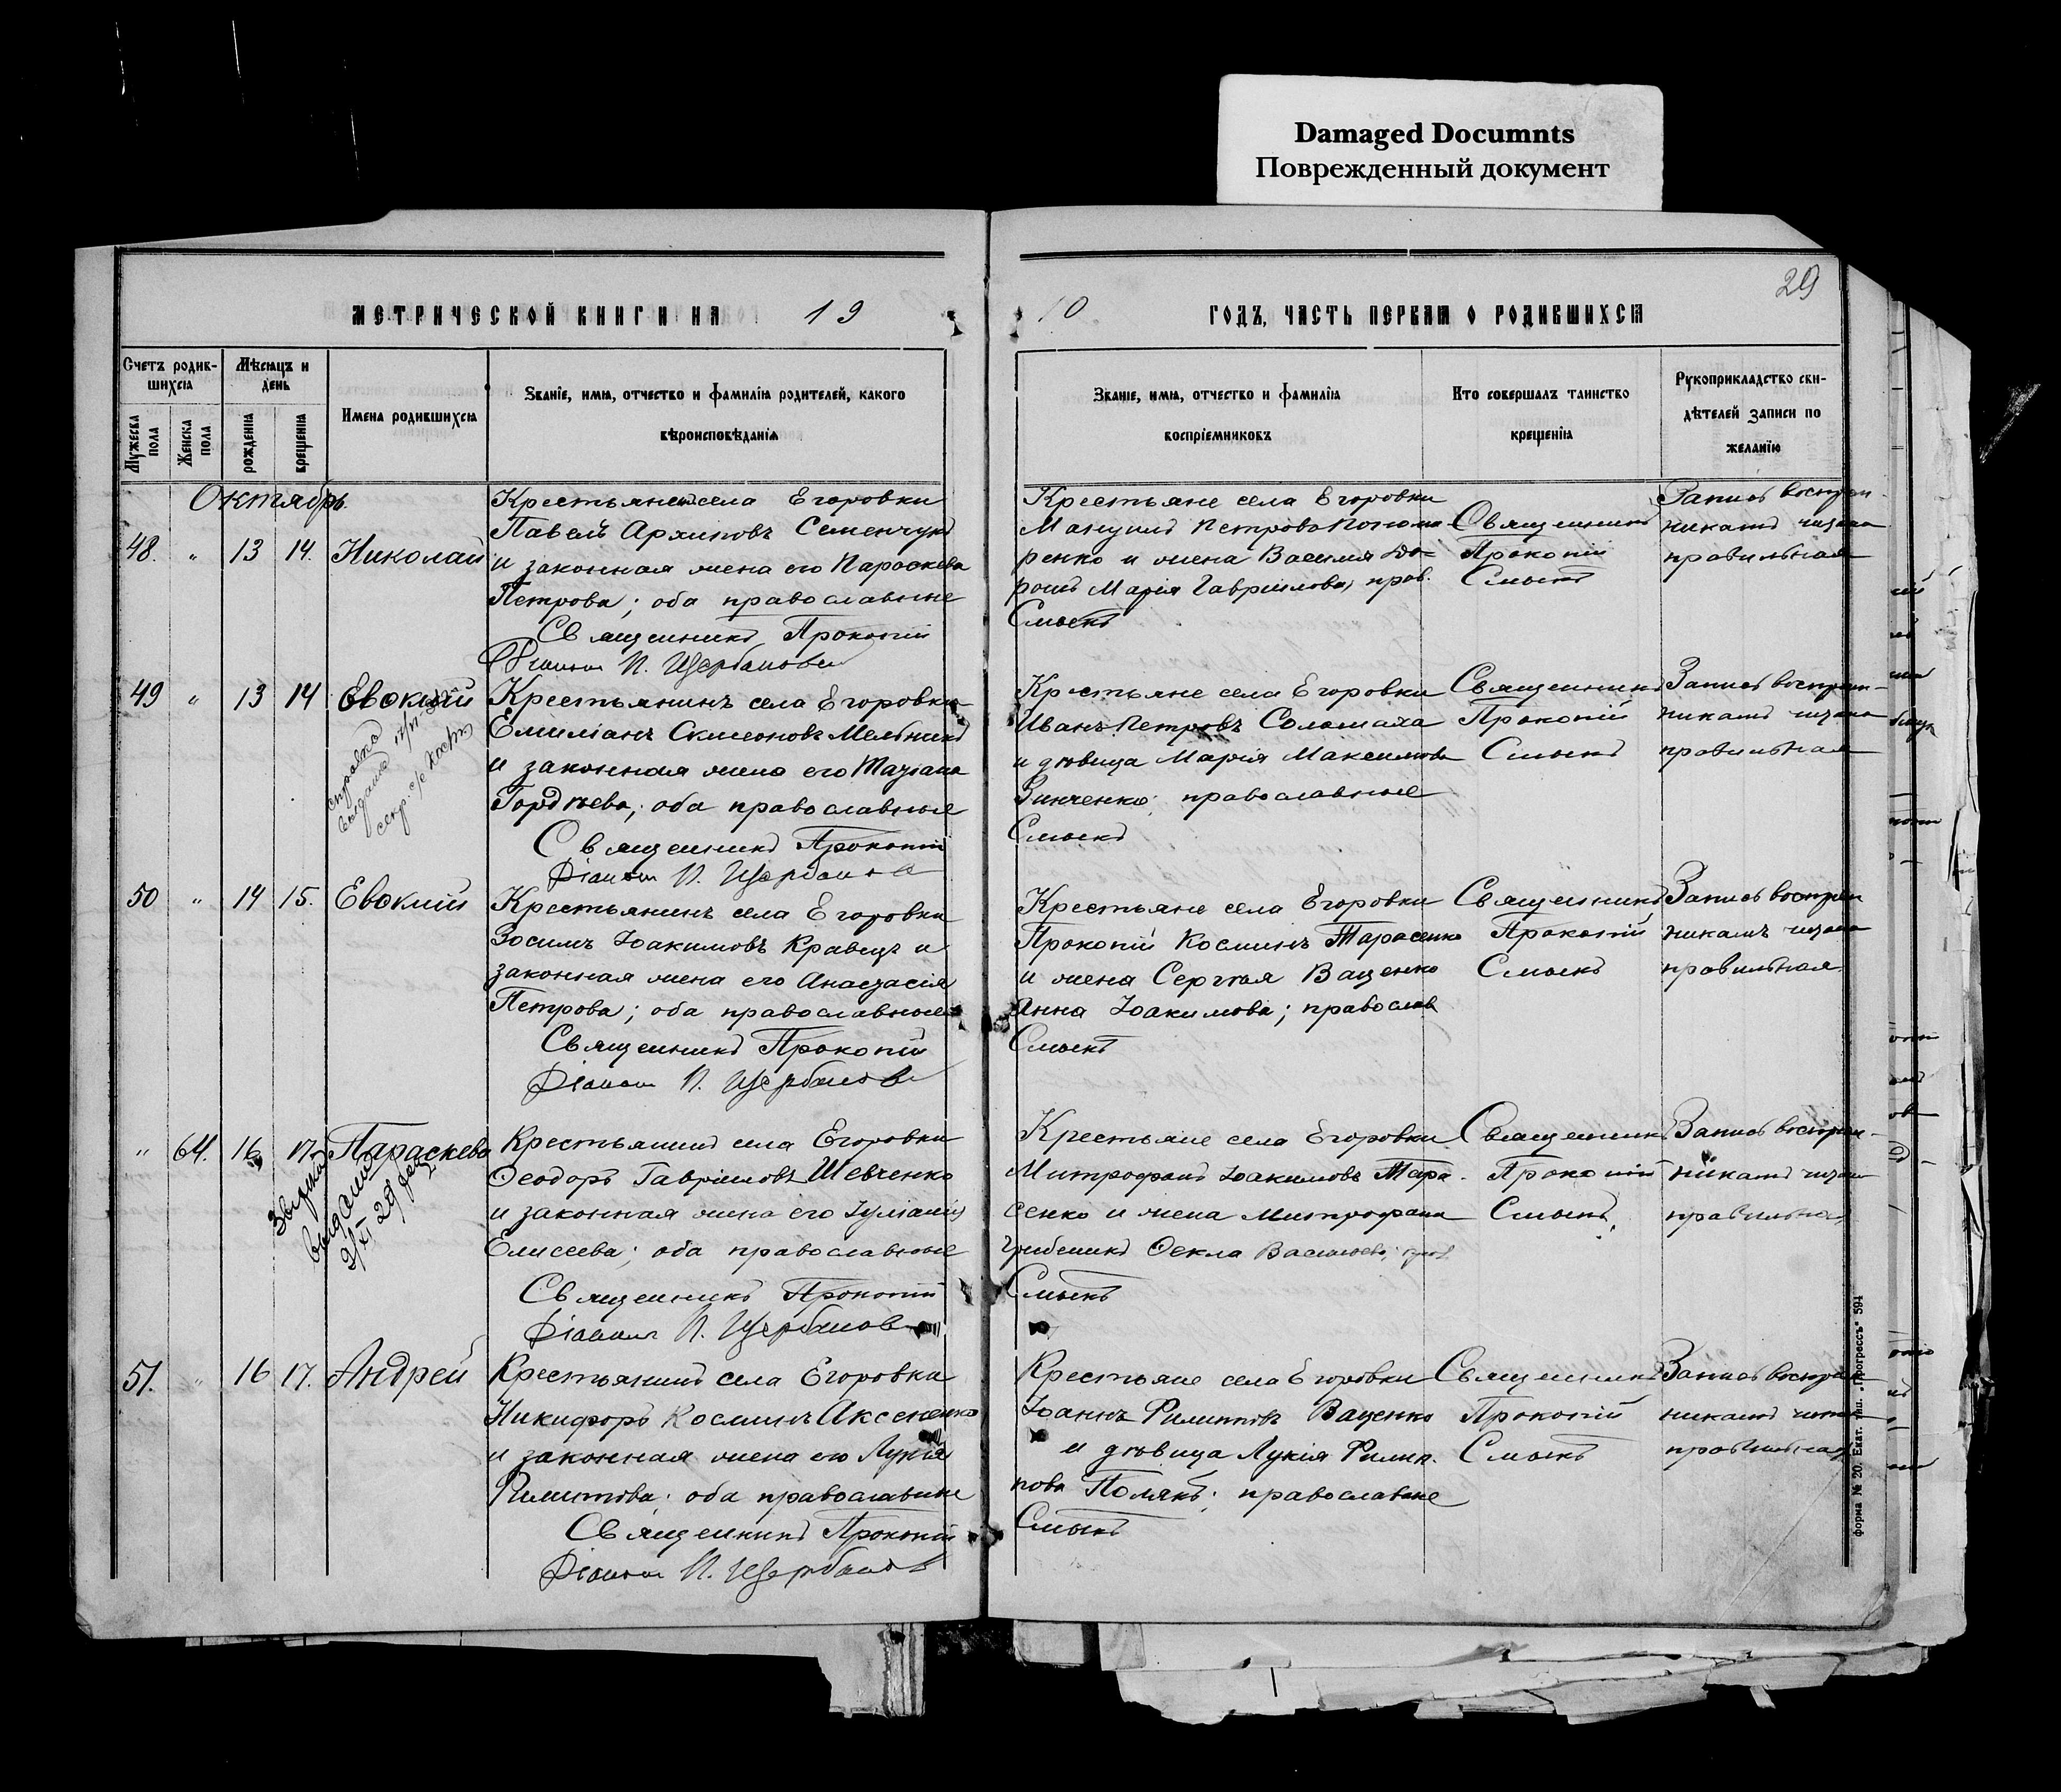 Damaged Documnts
Поврежденный документ
29
МЕТРИЧЕСКОЙ КНИГИ НА 19
10 ГОДЪ, ЧАСТЬ ПЕРВАЯ О РОДИВШИХСЯ
Счетъ родив-
шихся
Мужеска пола
Женска пола
Мѣсяцъ и
день
рожденія
крещенія
Имена родившихся
Званіе, имя, отчество и фамилія родителей, какого
вѣроисповѣданія
Званіе, имя, отчество и фамилія
воспріемниковъ
Кто совершалъ таинство
крещенія
Рукоприкладство сви-
дѣтелей записи по
желанію
Октябрь
48. " 13 14. Николай
Крестьянинъ села Егоровки
Павелъ Архиповъ Семенчукъ
и законная жена его Параскева
Петрова; оба православные
Священникъ Прокопій
П. Щербановъ
Крестьяне села Егоровки
Мануилъ Петровъ Понома
ренко и жена Василія До-
рошъ Марія Гавриилова, прав.
Смыкъ
Священникъ
Прокопій
Смыкъ
Запись воспрем-
никамъ читана
правильная
49 " 13 14 Евѳимій
справка
выдана
Крестьянинъ села Егоровки
Емиліанъ Симеоновъ Мельникъ
и законная жена его Татіана
Гордѣева; оба православные
Священникъ Прокопій
Діаконъ П. Щербановъ
Крестьяне села Егоровки
Иванъ Петровъ Соломаха
и дѣвица Марія Максимова
Зинченко; православные
Смыкъ
Священникъ
Прокопій
Смыкъ
Запись воспрем-
никамъ читана
правильная
50 " 14 15. Евѳимій
Крестьянинъ села Егоровки
Зосимъ Іоакимовъ Кравецъ и
законная жена его Анастасія
Петрова; оба православные
Священникъ Прокопій
Діаконъ П. Щербановъ
Крестьяне села Егоровки
Прокопій Косминъ Тарасенко
и жена Сергѣя Ващенко
Анна Іоакимова; православ
Смыкъ
Священникъ
Прокопій
Смыкъ
Запись воспрем
никамъ читана
правильная
" 64. 16 17. Параскева
выдана
Крестьянинъ села Егоровки
Ѳеодоръ Гаврииловъ Шевченко
и законная жена его Іуліанія
Елисеева; оба православные
Священникъ Прокопій
Діаконъ П. Щербановъ
Крестьяне села Егоровки
Митрофанъ Іоакимовъ Тара-
сенко и жена Митрофана
Гребеникъ Ѳекла Васильева; прав.
Смыкъ
Священникъ
Прокопій
Смыкъ
Запись воспрем-
никамъ читана
правильная
51. " 16 17. Андрей
Крестьянинъ села Егоровки
Никифоръ Косминъ Аксененко
и законная жена его Лукія
Филиппова; оба православные
Священникъ Прокопій
Діаконъ П. Щербановъ
Крестьяне села Егоровки
Іоаннъ Филипповъ Ващенко
и дѣвица Лукія Филип.
пова Полякъ; православные
Смыкъ
Священникъ
Прокопій
Смыкъ
Запись воспрем
никамъ читана
правильная
форма № 20. Екат. тип. „Прогрессъ" 594